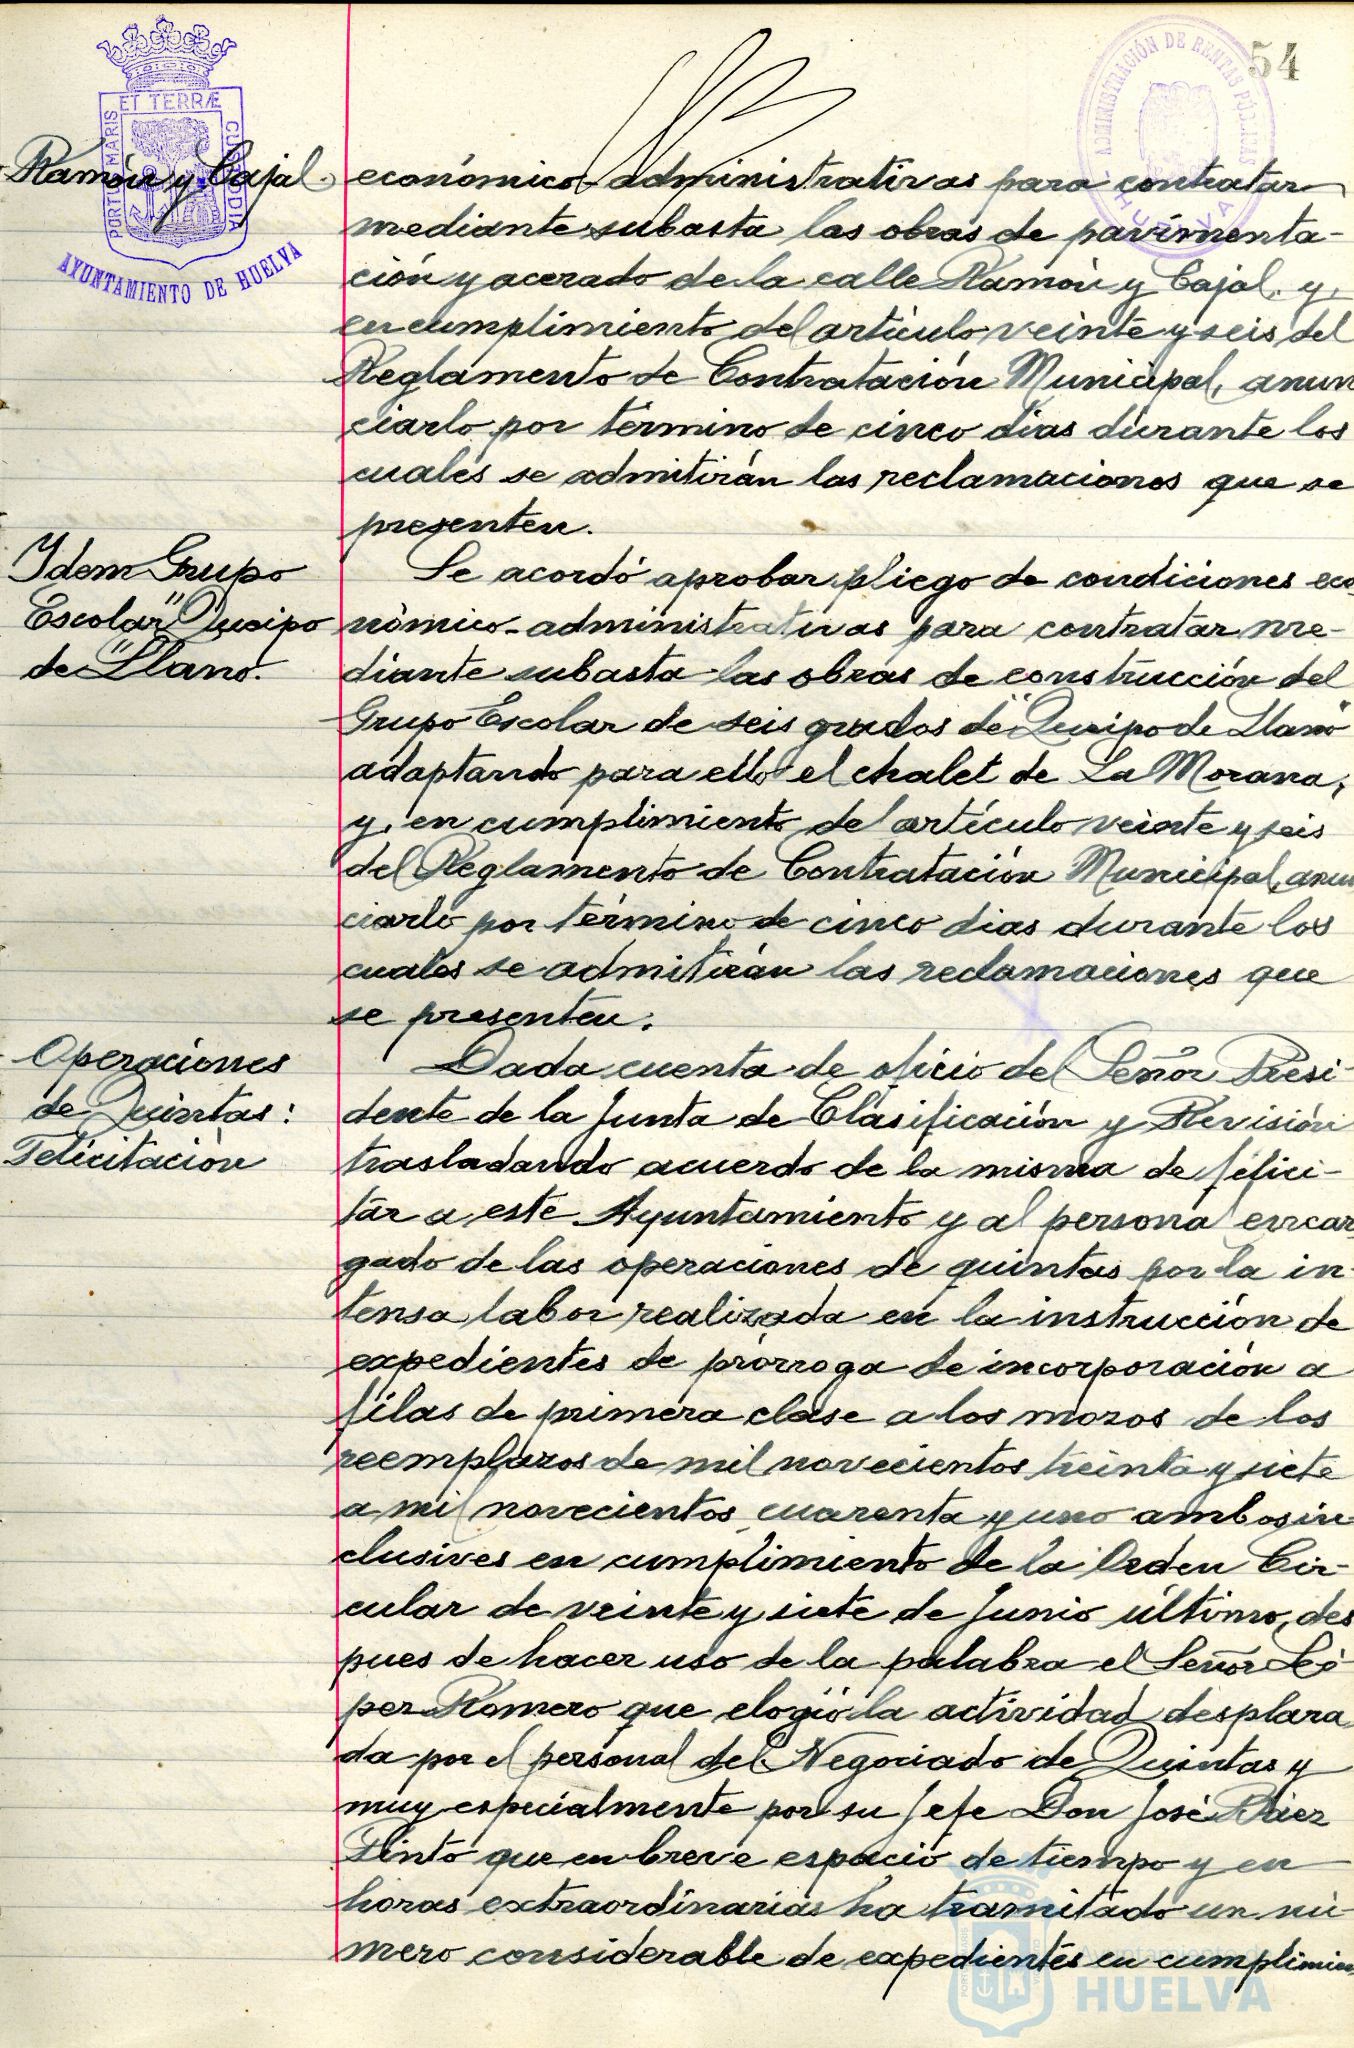 54
ET TERRÆ
PORTUS MARIS
CUSTODIA
AYUNTAMIENTO DE HUELVA
ADMINISTRACIÓN DE RENTAS PÚBLICAS
HUELVA
Ramón y Cajal.
económico-administrativas para contratar
mediante subasta las obras de pavimenta-
ción y acerado de la calle Ramón y Cajal, y,
en cumplimiento del artículo veinte y seis del
Reglamento de Contratación Municipal, anun
ciarlo por término de cinco dias durante los
cuales se admitirán las reclamaciones que se
presenten.
Idem Grupo
Escolar "Queipo
de Llano".
Se acordó aprobar pliego de condiciones eco
nómico-administrativas para contratar me-
diante subasta las obras de construcción del
Grupo Escolar de seis grados de "Queipo de Llano"
adaptando para ello el chalet de La Morana,
y, en cumplimiento del artículo veinte y seis
del Reglamento de Contratación Municipal, anun
ciarlo por término de cinco dias durante los
cuales se admitirán las reclamaciones que
se presenten.
Operaciones
de Quintas:
Felicitación
Dada cuenta de oficio del Señor Presi-
dente de la Junta de Clasificación y Revisión
trasladando acuerdo de la misma de felici-
tar a este Ayuntamiento y al personal encar
gado de las operaciones de quintas por la in-
tensa labor realizada en la instrucción de
expedientes de prórroga de incorporación a
filas de primera clase a los mozos de los
reemplazos de mil novecientos treinta y siete
a mil novecientos cuarenta y uno ambos in-
clusives en cumplimiento de la Orden Cir-
cular de veinte y siete de Junio último, des
pues de hacer uso de la palabra el Señor Ló-
pez Romero que elogió la actividad desplaza
da por el personal del Negociado de Quintas y
muy especialmente por su Jefe Don José Báez
Pinto que en breve espacio de tiempo y en
horas extraordinarias ha tramitado un nú-
mero considerable de expedientes en cumplimien
Ayuntamiento de
HUELVA